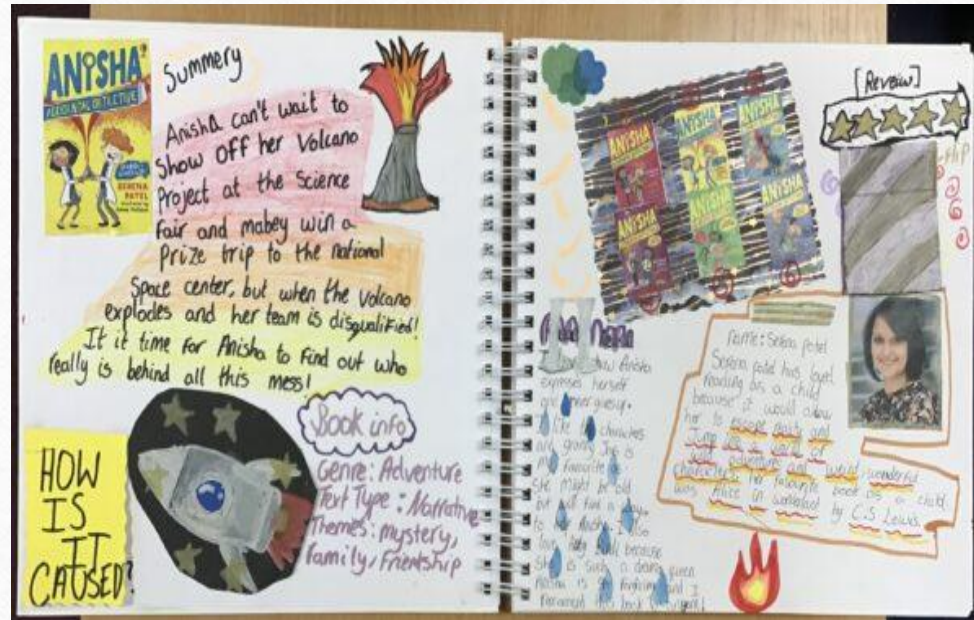 ANISHA
ACCIDENTAL DETECTIVE
SERENA
PATEL
Summery
Anisha can't wait to
Show off her Volcano
Project at the Science
Fair and mabey win a
Prize trip to the national
Space center, but when the Volcano
explodes and her team is disqualified!
It it time for Anisha to find out who
really is behind all this mess!
Book info
Genre: Adventure
Text Type: Narrative
Themes: mystery,
Family, Friendship
HOW
IS
IT
CAUSED?
[Review]
flip
ANISHA
ANISHA
ANISHA
ANISHA
ANISHA
ANISHA
Anisha
expresses herself
and never gives up.
I like the characters
and granny Jas is
my favourite
She might be old
but will find a
to
love because
She is such a queen
is and I
this book
name: Serena Patel
Serena patel has loved
reading as a child
because it would allow
her to escape reality and
Jump into
adventures and weird, wonderful
characters her favourite book as a child
was Alice in wonderland by C.S Lewis